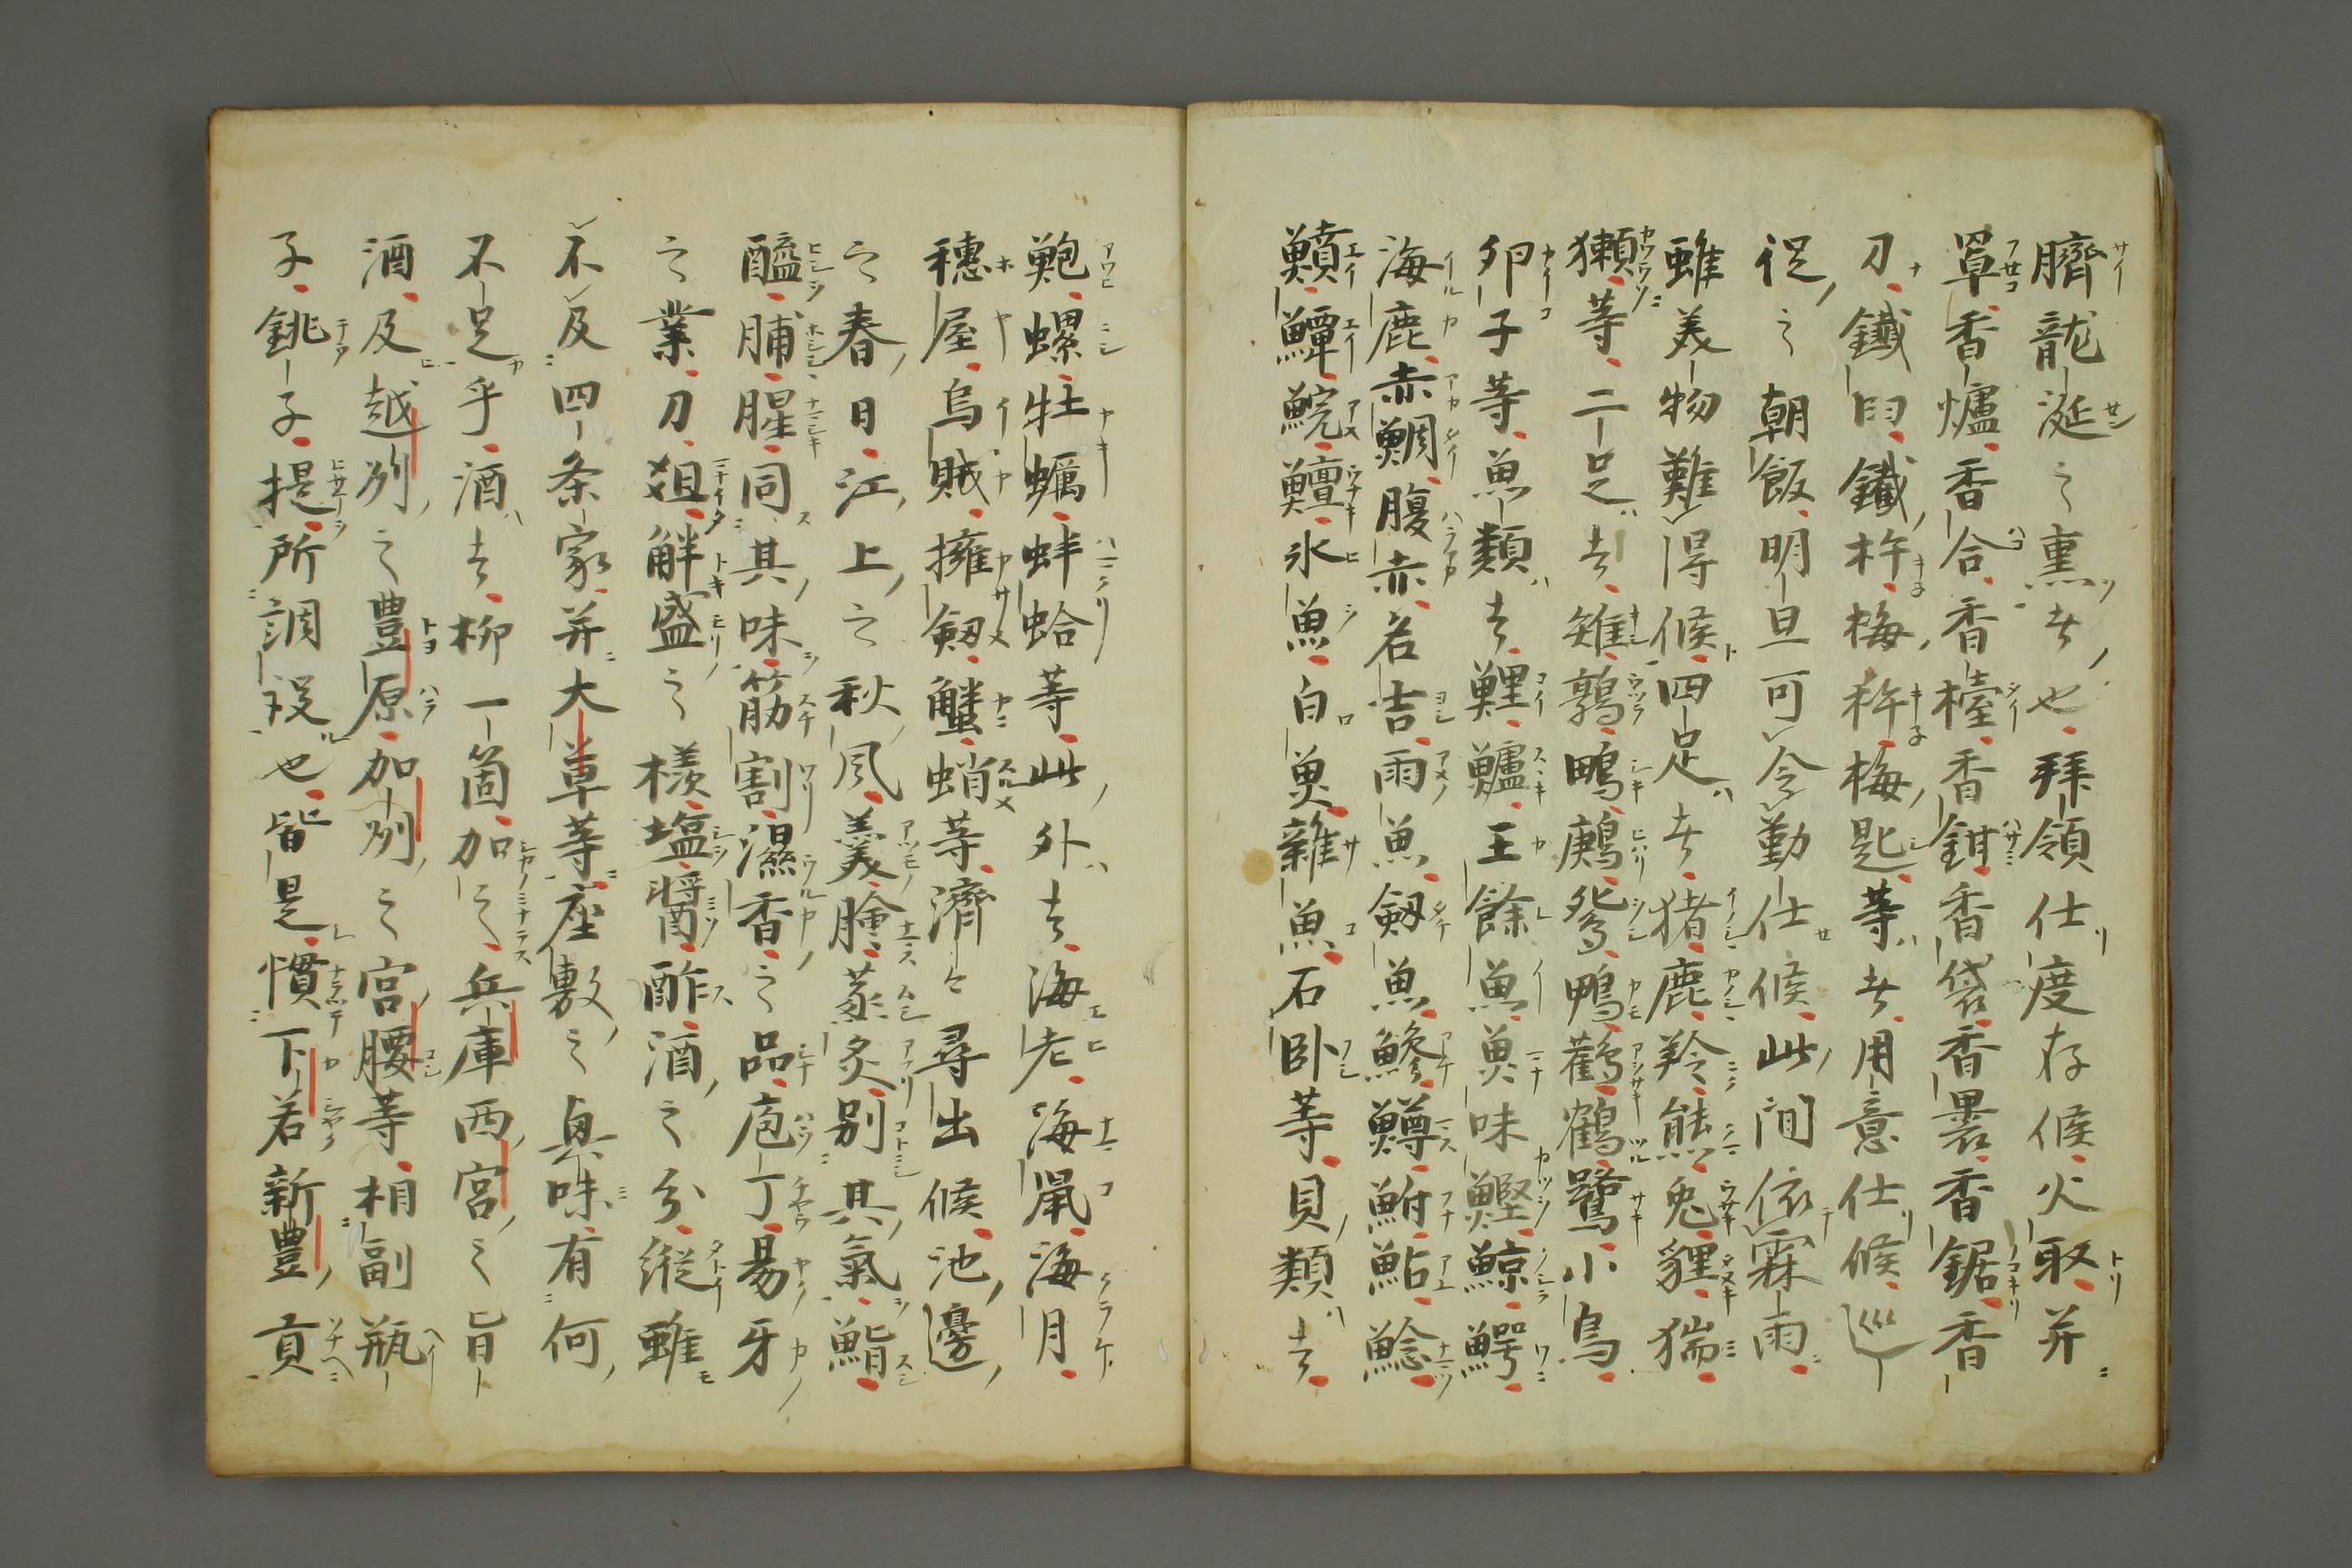 臍龍涎之熏者也拜領仕度存候火取并
罩香爐香合香檯香鉗香袋香裹香鋸香
刀鐵臼鐵杵梅杵梅匙等者用意仕候巡
役之朝飯明旦可令勤仕候此間依霖雨
雖美物難得候四足者猪鹿羚熊兎貍猯
獺等二足者雉鶉鴫鶊鵥鴨鸛鶴鷺小鳥
卵子等魚類者鯉鱸王餘魚魚味鰹鯨鰐
海鹿赤鯛腹赤若吉雨魚劔魚鯵鱒鮒鮎鯰
鱝鱏鯇鱣氷魚白魚雑魚石卧等貝類者
鮑螺牡蠣蚌蛤等此外者海老海鼠海月
穗屋烏賊擁劔蠏蛸等濟々尋出候池邊
之春日江上之秋風羹膾蒸炙別其氣鮨
醢脯腥同其味筋割濕香之品庖丁易牙
之業刀俎觧盛之樣塩醬酢酒之分縱雖
不及四条家并大草等座敷之臭味有何
不足乎酒者柳一箇加之兵庫西宮之旨
酒及越列之豊原加列之宮腰等相副瓶
子銚子提所調設也皆是慣下若新豊貢